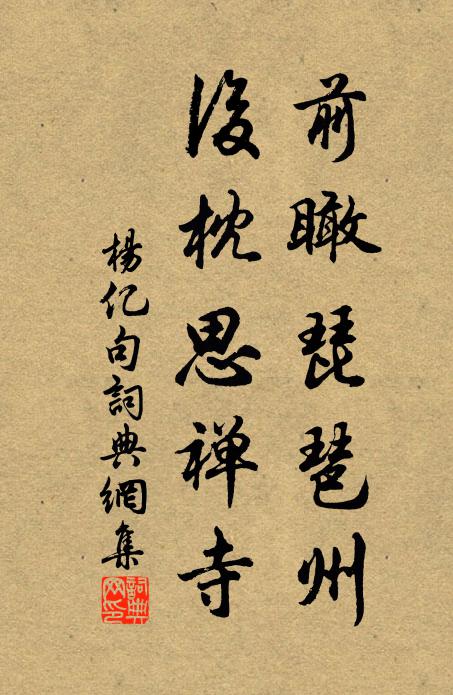 前瞰琵琶州
後枕思禅寺
楊亿句詞典網集
詞典網印